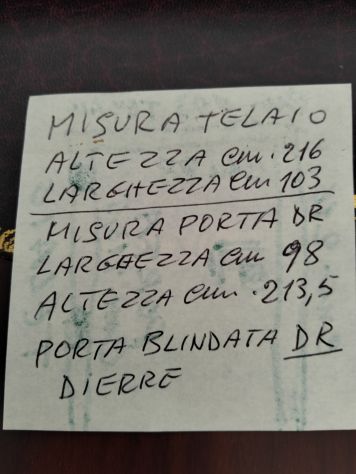 MISURA TELAIO
ALTEZZA cm. 216
LARGHEZZA cm 103
MISURA PORTA DR
LARGHEZZA cm 98
ALTEZZA cm. 213,5
PORTA BLINDATA DR
DIERRE